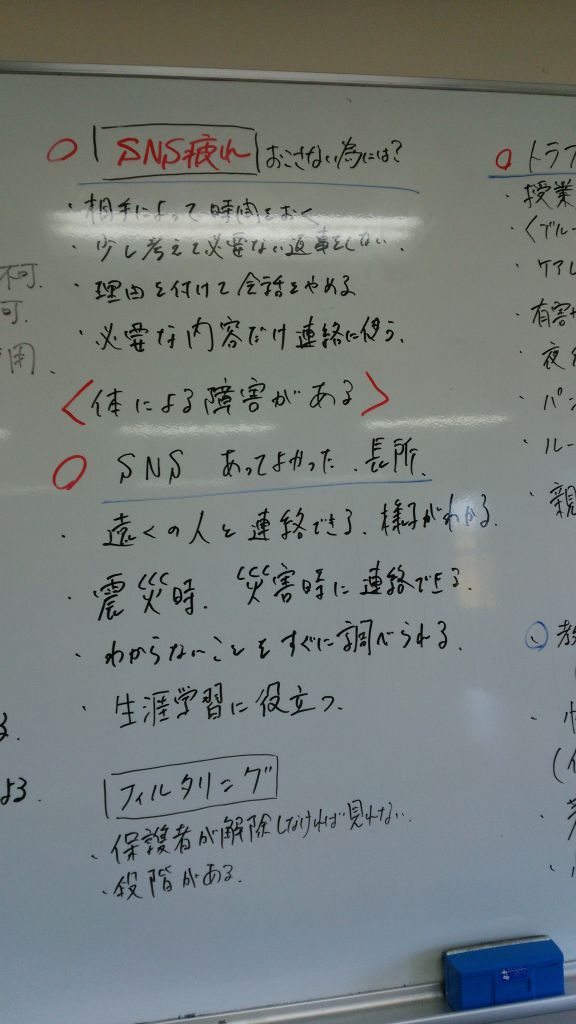 ○ SNS疲れ おこさない為には?
・相手によって時間をおく
・少し考えて必要ない返事をしない.
・理由を付けて会話をやめる
・必要な内容だけ連絡に使う.
〈体による障害がある〉
○ SNS あってよかった、長所.
・遠くの人と連絡できる、様子がわかる.
・震災時、災害時に連絡できる.
・わからないことをすぐに調べられる.
・生涯学習に役立つ.
フィルタリング
・保護者が解除しなければ見れない.
・段階がある.
不可.
可.
用.
る.
よる.
○ トラブ
・授業
〈グルー
・ケアレ
・有害サ
・夜
・パン
・ルー
・親